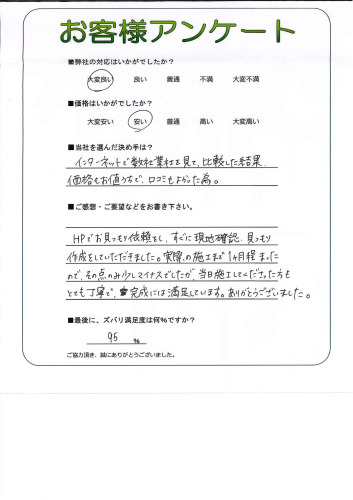 お客様アンケート
■弊社の対応はいかがでしたか？
大変良い 良い 普通 不満 大変不満
■価格はいかがでしたか？
大変安い 安い 普通 高い 大変高い
■当社を選んだ決め手は？
インターネットで数社業社を見て、比較した結果
価格もお値うちで、口コミもよかった為。
■ご感想・ご要望などをお書き下さい。
HPでお見つもり依頼をし、すぐに現地確認、見つもり
作成をしていただきました。実際の施工まで1ヶ月程まった
ので、その点のみ少しマイナスでしたが、当日施工してくださった方も
とても丁寧で、完成には満足しています。ありがとうございました。
■最後に、ズバリ満足度は何％ですか？
95 ％
ご協力頂き、誠にありがとうございました。